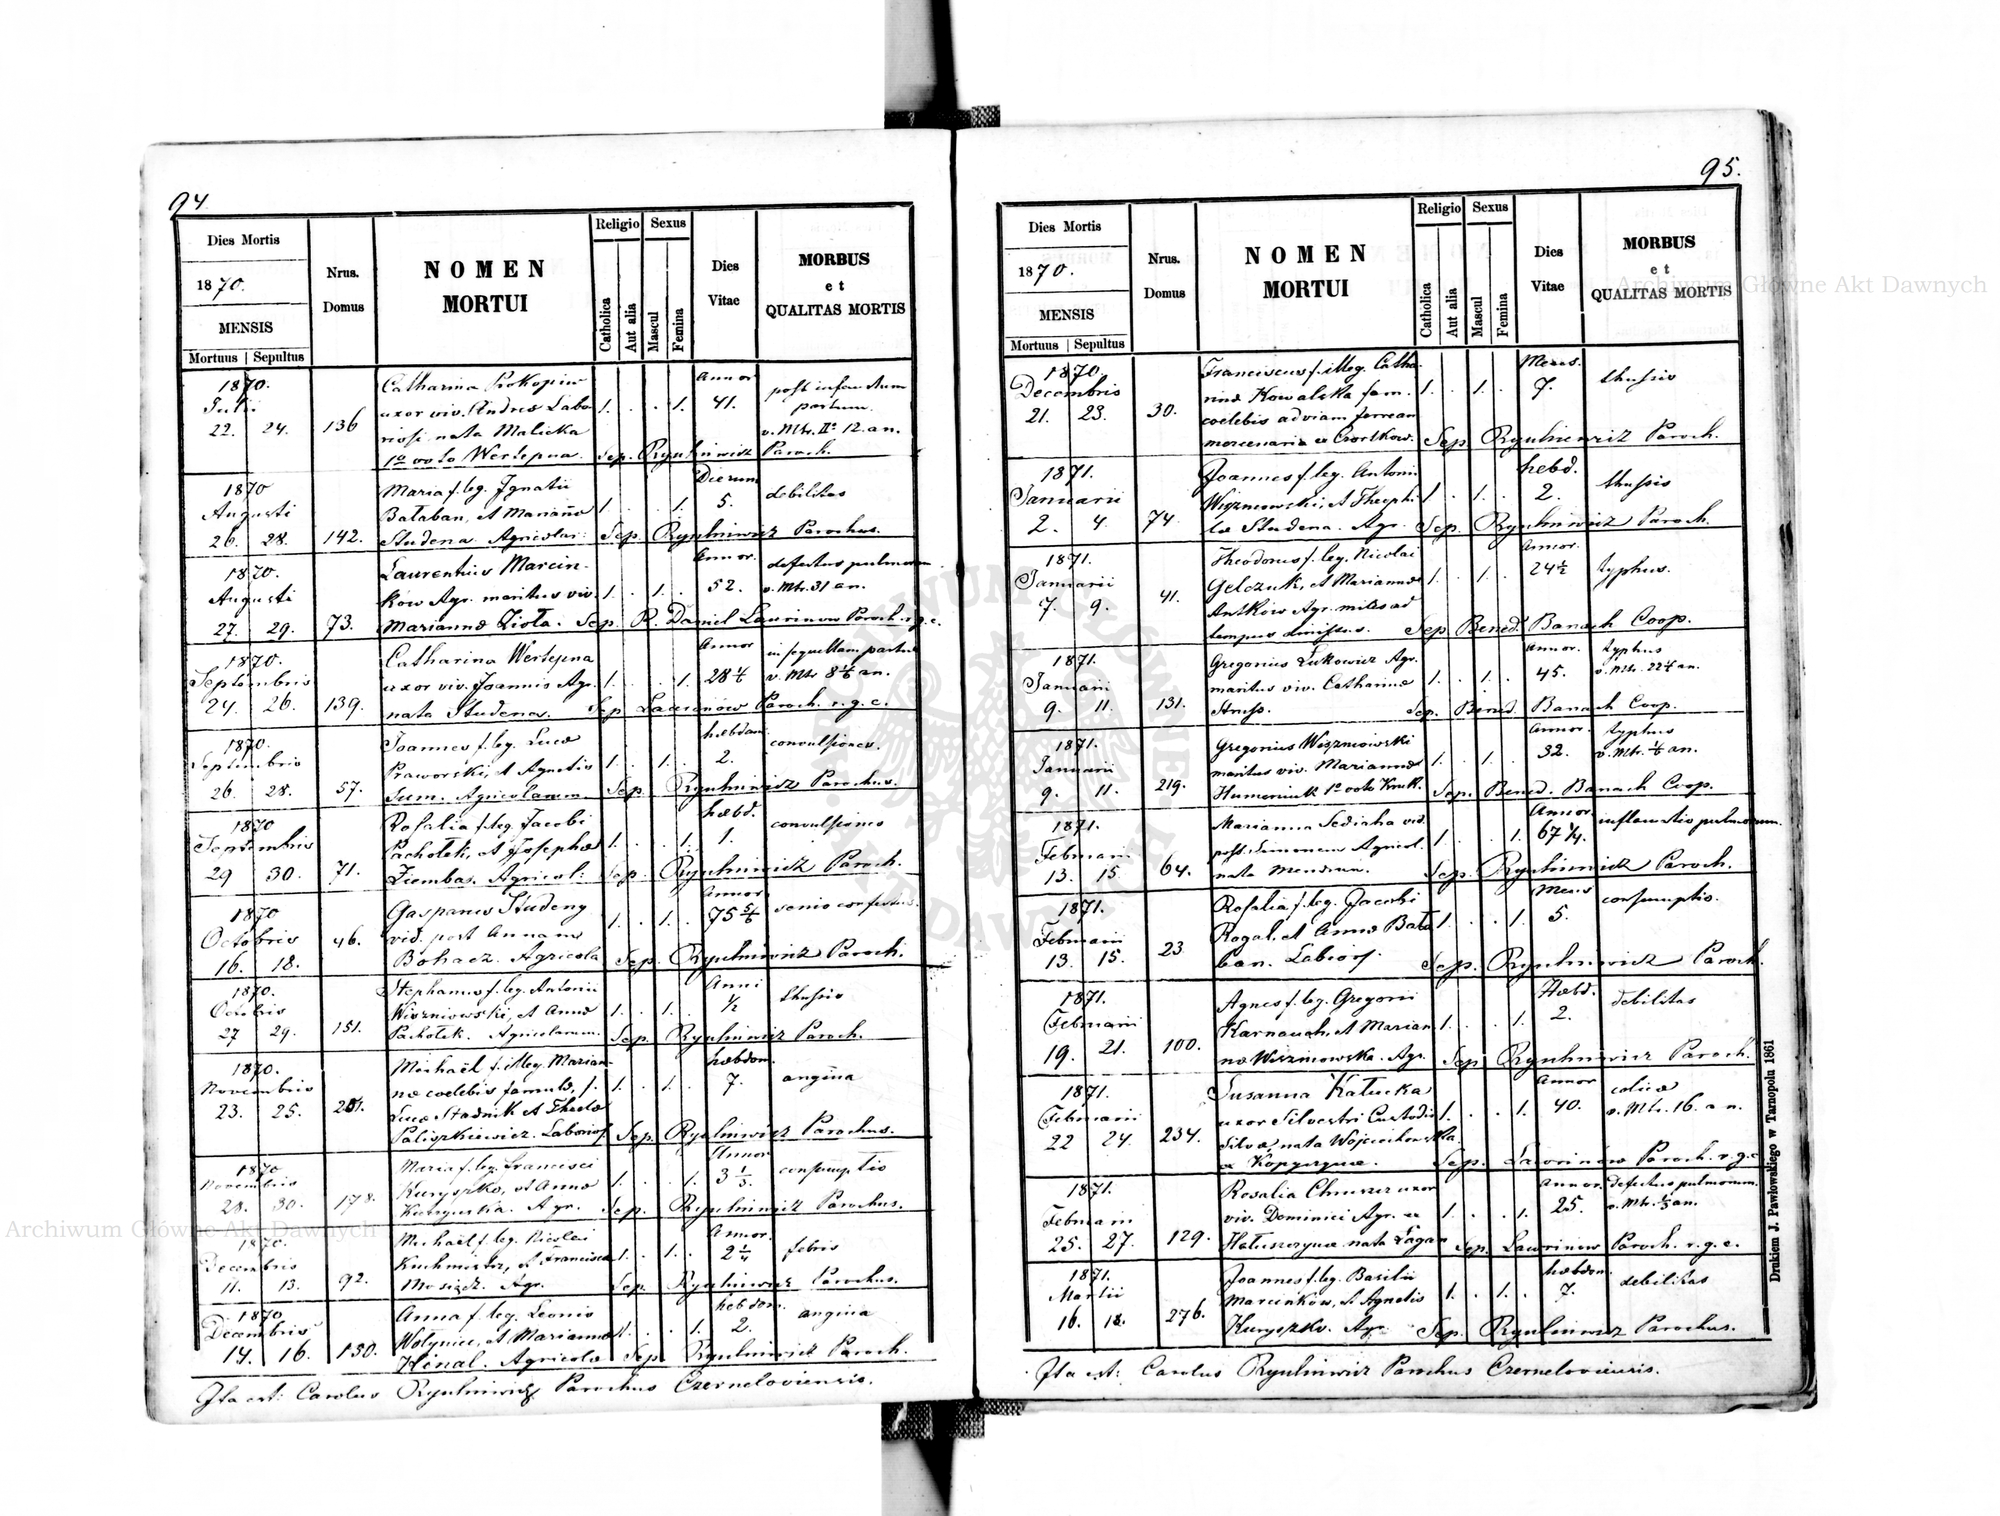 94.
Dies Mortis
1870.
MENSIS
Mortuus | Sepultus
Nrus. Domus
NOMEN
MORTUI
Religio
Catholica
Aut alia
Sexus
Mascul
Femina
Dies
Vitae
MORBUS
et
QUALITAS MORTIS
1870. Julii 22. 24. 136
Catharina Prokopiw
uxor viv. Andreae Labo
riosi nata Malicka
1o voto Wertepna.
1. . . 1. Annor 41.
post infaustum
partum.
v. Mtr. IIo 12. an.
Sep. Paroch.
1870 Augusti 26. 28. 142.
Maria f. leg. Ignatii
Bałaban, et Mariannae
Studena Agricolar:
1. . . 1. Dierum 5. debilitas
Sep. Parochus.
1870. Augusti 27. 29. 73.
Laurentius Marcin-
ków Agr. maritus viv.
Mariannae Zioła.
1. . 1. . Annor. 52. defectus pulmonum
v. Mtr. 31 an.
Sep. R. Daniel Laurinow Paroch. r. g. c.
1870. Septembris 24. 26. 139.
Catharina Wertepna
uxor viv. Joannis Agr.
nata Studena.
1. . . 1. Annor 28
v. Mtr 8 an.
Sep Laurinów Paroch. r. g. c.
1870. Septembris 26. 28. 57.
Joannes f. leg. Lucae
Praworski, et Agnetis
Sum. Agricolarum
1. . 1. . hebdom. 2. convulsiones.
Sep. Parochus.
1870 Septembris 29 30. 71.
Rosalia f. leg. Jacobi
Pachołek, et Josephae
Ziemba. Agricol:
1. . . 1. hebd. 1. convulsiones
Sep. Paroch.
1870 Octobris 16. 18. 46.
Gasparus Studeny
vid. post Annam
Bohacz. Agricola
1. . 1. . Annor 75 5/6 senio confectus.
Sep. Paroch.
1870. Octobris 27 29. 151.
Stephanus f. leg. Antonii
Wiszniowski, et Annae
Pachołek. Agricolarum.
1. . 1. . Anni 1/2 thussis
Sep. Paroch.
1870. Novembris 23. 25. 201.
Michaël f. illeg. Marian-
nae coelebis famulae, f.
Lucae Stadnik et Theclae
Paliszkiewicz. Laborios.
1. . 1. . hebdom. 7. angina
Sep. Parochus.
1870 Novembris 28. 30. 178.
Maria f. leg. Francisci
Kuryszko, et Annae
Agr.
1. . . 1. Annor 3 1/3. consumptio
Sep. Parochus.
1870. Decembris 11. 13. 92.
Michaël f. leg. Nicolai
Kuchmistrz, et Franciscae
Mosiądz. Agr.
1. . 1. . Annor. 2 1/4 febris
Sep. Parochus.
1870 Decembris 14. 16. 150.
Anna f. leg. Leonis
Wołyniec, et Mariannae
Hinal. Agricolae
1. . . 1. hebdom. 2. angina
Sep. Paroch.
Ita est: Carolus Parochus Czerneloviensis.
95.
Dies Mortis
1870.
MENSIS
Mortuus | Sepultus
Nrus. Domus
NOMEN
MORTUI
Religio
Catholica
Aut alia
Sexus
Mascul
Femina
Dies
Vitae
MORBUS
et
QUALITAS MORTIS
1870. Decembris 21. 23. 30.
Franciscus f. illeg. Catha-
rinae Kowalska fam.
coelebis ad viam ferream
mercenaria ex Czortkow.
1. . 1. . Mens. 7. thussis
Sep. Paroch.
1871. Januarii 2. 4. 74.
Joannes f. leg. Antonii
Wiszniowski, et Theophi-
lae Studena. Agr.
1. . 1. . hebd. 2. thussis
Sep. Paroch.
1871. Januarii 7. 9. 41.
Theodorus f. leg. Nicolai
Gelczuk, et Mariannae
Antków Agr. miles ad
tempus dimissus.
1. . 1. . Annor. 24 1/2 typhus.
Sep. Bened. Banach Coop.
1871. Januarii 9. 11. 131.
Gregorius Łukowicz Agr.
maritus viv. Catharinae
1. . 1. . Annor. 45. typhus
v. Mtr. 22 an.
Sep. Bened. Banach Coop.
1871. Januarii 9. 11. 219.
Gregorius Wiszniowski
maritus viv. Mariannae
Humeniuk 1o voto Kruk.
1. . 1. . Annor. 32. typhus
v. Mtr. an.
Sep. Bened. Banach Coop.
1871. Februarii 13. 15. 64.
Marianna Sediaha vid.
post. Simonem Agricol.
nata Mendrun.
1. . . 1. Annor. 67 1/4. inflamatio pulmonum.
Sep. Paroch.
1871. Februarii 13. 15. 23
Rosalia f. leg. Jacobi
Rogal. et Annae Bała
ban. Labiors.
1. . . 1. Mens 5. consumptio.
Sep. Paroch.
1871. Februarii 19. 21. 100.
Agnes f. leg. Gregorii
Karnauch, et Marian
nae Wiszniowska. Agr.
1. . . 1. Hebd. 2. debilitas
Sep. Paroch.
1871. Februarii 22 24. 234.
Susanna Kałucka
uxor Silvestri Custodis
Silvae, nata Wojciechowska
ex Kopyczyniec.
1. . . 1. Annor 40. colica
v. Mtr. 16. an.
Sep. Lawrinow Paroch. r. g. c
1871. Februarii 25. 27. 129.
Rosalia Chruszcz uxor
viv. Dominici Agr. ex
nata Łagan
1. . . 1. Annor. 25. defectus pulmonum.
v. Mtr. an.
Sep. Lawrinow Paroch. r. g. c.
1871. Martii 16. 18. 276.
Joannes f. leg. Basilii
Marcinków, et Agnetis
Kuryszko. Agr.
1. . 1. . hebdom. 7. debilitas
Sep. Parochus.
Ita est: Carolus Parochus Czerneloviensis.
Drukiem J. Pawłowskiego w Tarnopolu 1861
Archiwum Główne Akt Dawnych
Archiwum Główne Akt Dawnych
ARCHIWUM GŁÓWNE AKT DAWNYCH